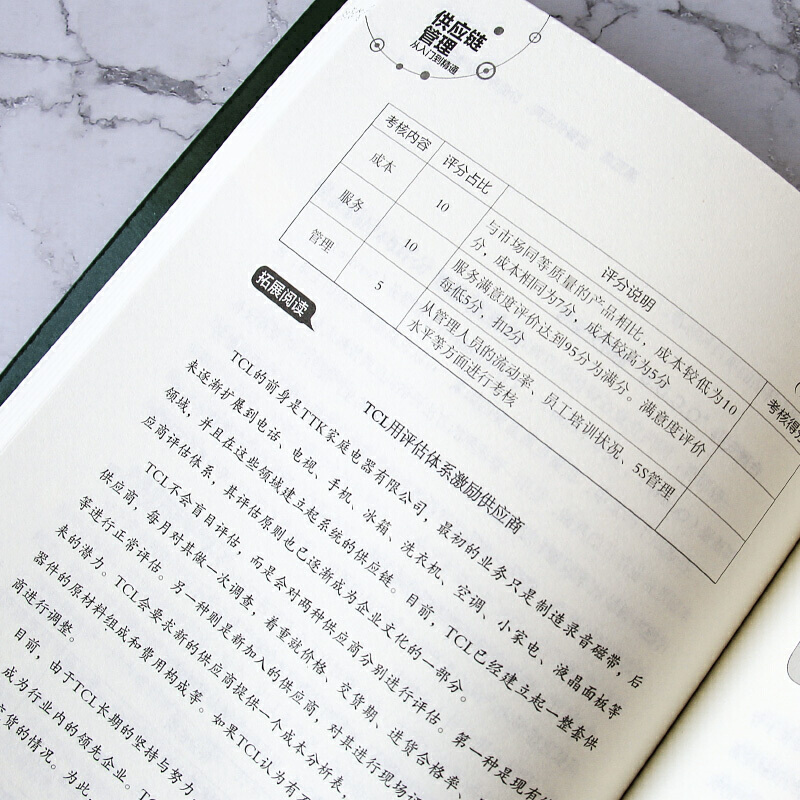 供应链
管理
从入门到精通
考核内容 评分占比 评分说明 考核得分
成本 10 与市场同等质量的产品相比，成本较低为10
分，成本相同为7分，成本较高为5分
服务 10 服务满意度评价达到95分为满分。满意度评价
每低5分，扣2分
管理 5 从管理人员的流动率、员工培训状况、5S管理
水平等方面进行考核
拓展阅读
TCL用评估体系激励供应商
TCL的前身是TTK家庭电器有限公司，最初的业务只是制造录音磁带，后
来逐渐扩展到电话、电视、手机、冰箱、洗衣机、空调、小家电、液晶面板等
领域，并且在这些领域建立起系统的供应链。目前，TCL已经建立起一整套供
应商评估体系，其评估原则也已逐渐成为企业文化的一部分。
TCL不会盲目评估，而是会对两种供应商分别进行评估。第一种是现有
供应商，每月对其做一次调查，着重就价格、交货期、进货合格率、
等进行正常评估。另一种则是新加入的供应商，对其进行现场
来的潜力。TCL会要求新的供应商提供一个成本分析表，
器件的原材料组成和费用构成等。如果TCL认为有
商进行调整。
目前，由于TCL长期的坚持与努力
成为行业内的领先企业。
交货的情况。为此，